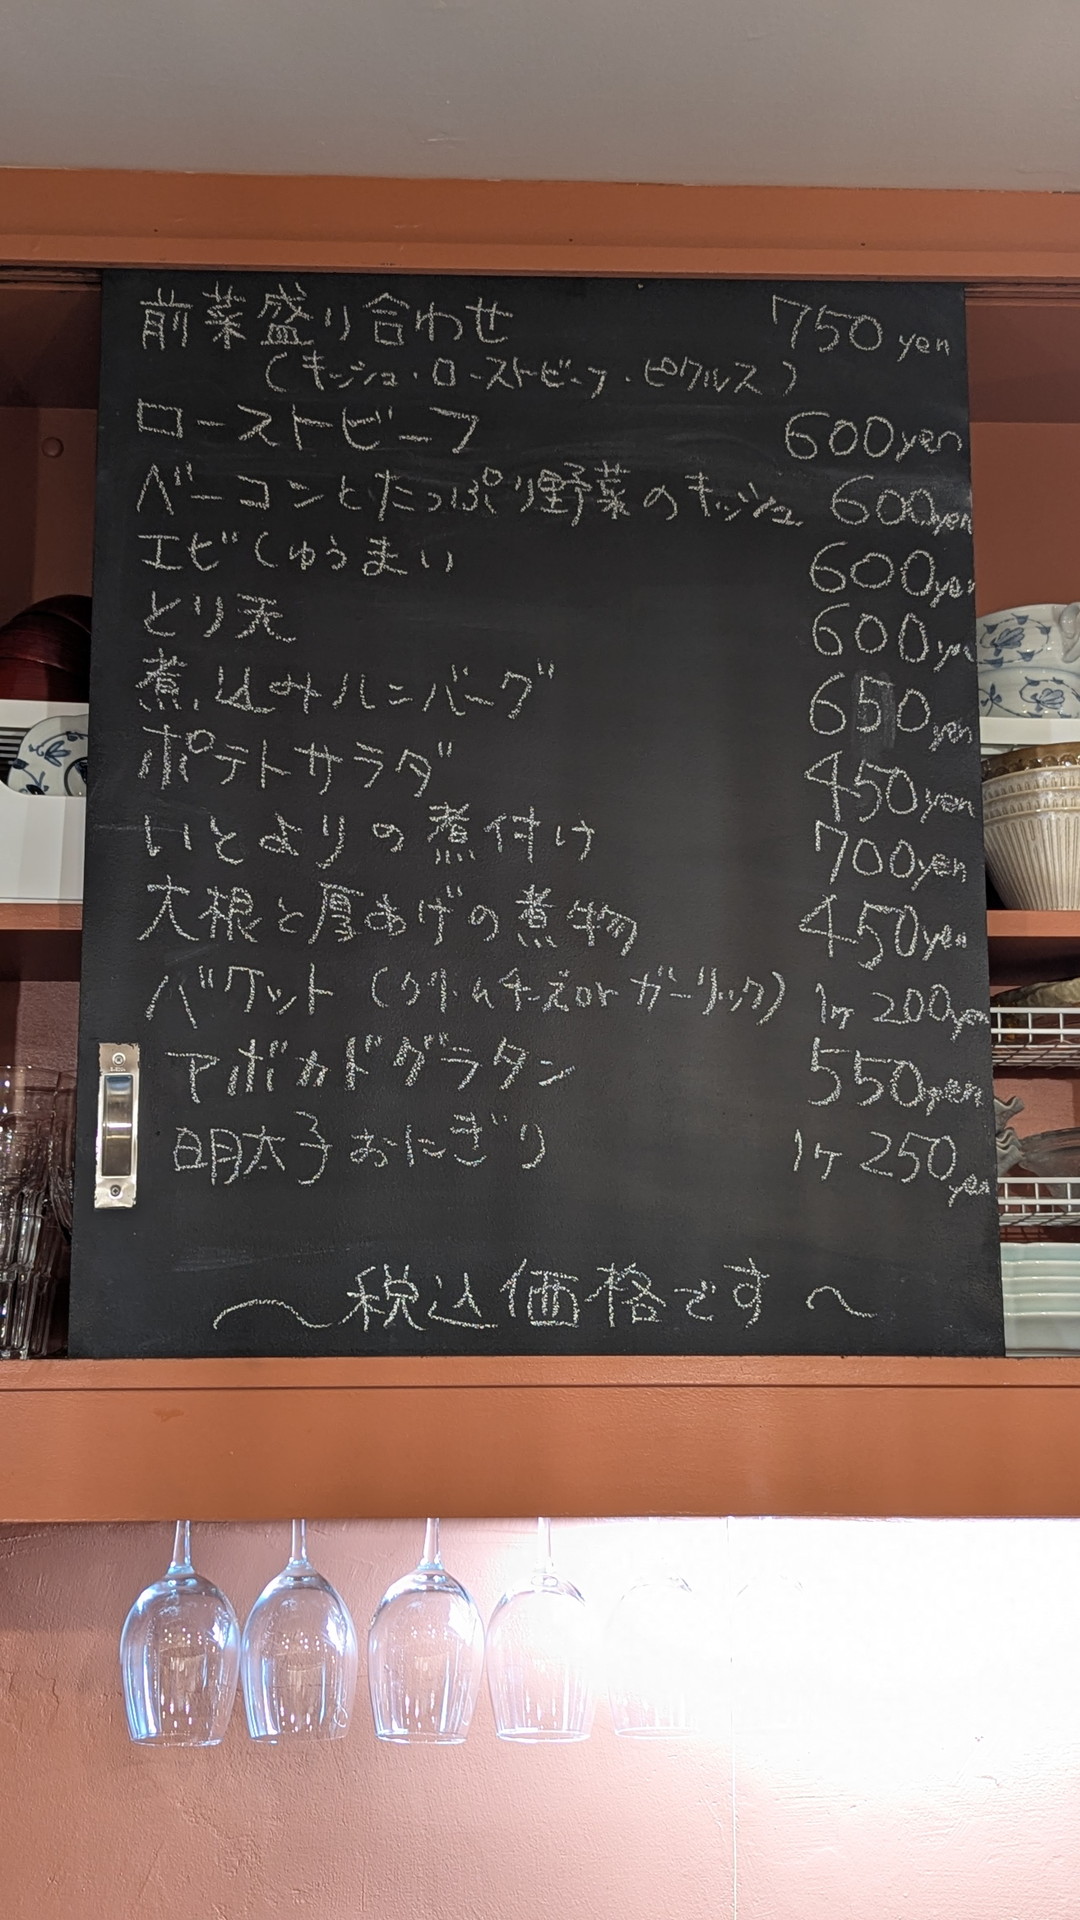 前菜盛り合わせ 750 yen
(キッシュ・ローストビーフ・ピクルス)
ローストビーフ 600yen
ベーコンとたっぷり野菜のキッシュ 600yen
エビしゅうまい 600yen
とり天 600yen
煮込みハンバーグ 650yen
ポテトサラダ 450yen
いとよりの煮付け 700yen
大根と厚あげの煮物 450yen
バケット (クリームチーズor ガーリック) 1ヶ 200yen
アボカドグラタン 550yen
明太子おにぎり 1ヶ 250yen
～税込価格です～